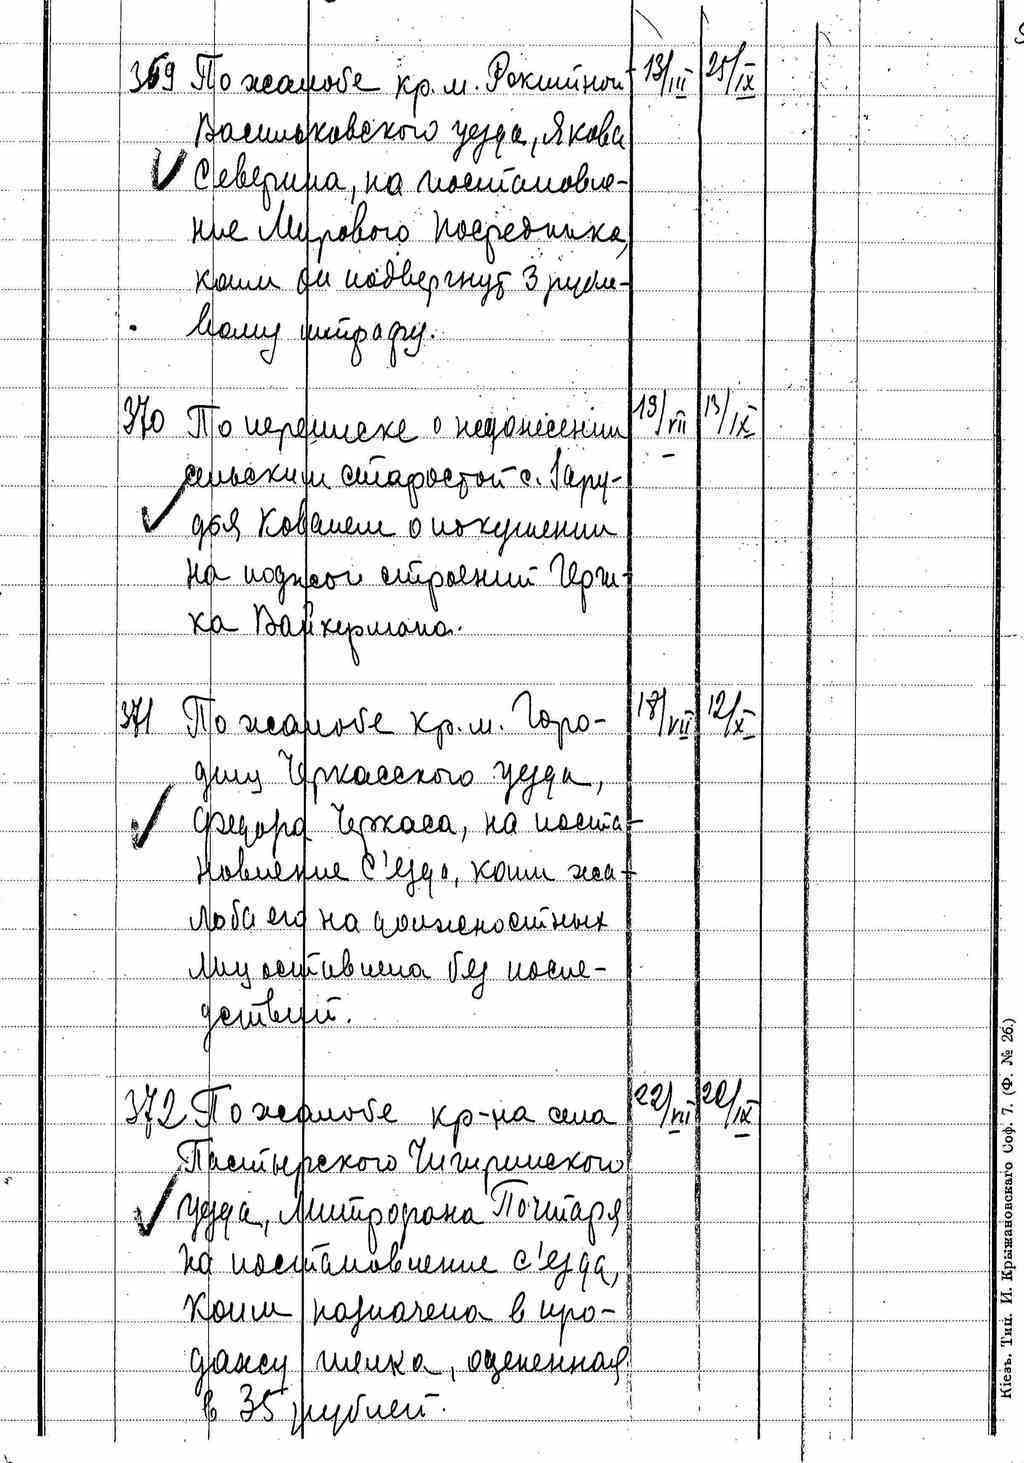 369 По жалобе кр. м. Рокитной 13/III 25/IX
Васильковского уезда, Якова
Северина, на постановле-
ние Мирового Посредника,
коим он подвергнут 3 рубле-
вому штрафу.
370 По переписке о недонесении 19/VII 13/IX
сельским старостой с. Зару-
дья Ковалем о покушении
на поджог строений Герш-
ка Вайкермана.
371 По жалобе кр. м. Горо-
18/VII 12/X
дищ Черкасского уезда,
Федора Черкаса, на поста-
новление с'езда, коим жа-
лоба его на должностных
лиц оставлена без после-
дствий.
372 По жалобе кр-на села 22/VII 20/IX
Пастырского Чигиринского
уезда, Митрофана Почтаря
на постановление с'езда,
коим назначена в про-
дажу телка, оцененная
в 35 рублей.
Кіевъ. Тип. И. Крыжановскаго Соф. 7. (Ф. № 26.)